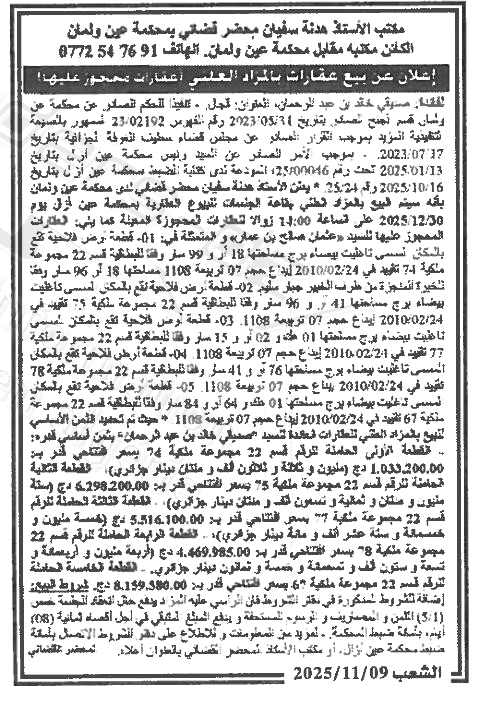 مكتب الأستاذ هدنة سفيان محضر قضائي بمحكمة عين ولمان
الكائن مكتبه مقابل محكمة عين ولمان. الهاتف 91 76 54 0772
إعلان عن بيع عقارات بالمزاد العلني (عقارات محجوز عليها)
لفائدة: صديقي خالد بن عبد الرحمان، العنوان: قجال، - تنفيذا للحكم الصادر عن محكمة عين
ولمان قسم الجنح الصادر بتاريخ 2023/05/31 رقم الفهرس 23/02192 الممهور بالصيغة
التنفيذية المؤيد بموجب القرار الصادر عن مجلس قضاء سطيف الغرفة الجزائية بتاريخ
2023/07/17. - بموجب الأمر الصادر عن السيد رئيس محكمة عين أزال بتاريخ
2025/01/13 تحت رقم 25/00046، المودعة لدى كتابة الضبط بمحكمة عين أزال بتاريخ
2025/10/16 رقم 25/24. * يعلن الأستاذ هدنة سفيان محضر قضائي لدى محكمة عين ولمان
بأنه سيتم البيع بالمزاد العلني بقاعة الجلسات للبيوع العقارية بمحكمة عين أزال يوم
2025/12/30 على الساعة 14:00 زوالا للعقارات المحجوزة المبينة كما يلي: العقارات
المحجوز عليها للسيد «عثمان صالح بن عمار» و المتمثلة في: 01- قطعة أرض فلاحية تقع
بالمكان المسمى تاغليت بيضاء برج مساحتها 18 آر و 99 سار وفقا للبطاقية قسم 22 مجموعة
ملكية 74 تقيد في 2010/02/24 إيداع حجم 07 تربيعة 1108 مساحتها 18 آر و 96 سار وفقا
للخبرة المنجزة من طرف الخبير جبار سليم 02- قطعة أرض فلاحية تقع بالمكان المسمى تاغليت
بيضاء برج مساحتها 41 آر و 96 سار وفقا للبطاقية قسم 22 مجموعة ملكية 75 تقيد في
2010/02/24 إيداع حجم 07 تربيعة 1108. 03- قطعة أرض فلاحية تقع بالمكان المسمى
تاغليت بيضاء برج مساحتها 01 هك و 02 آر و 15 سار وفقا للبطاقية قسم 22 مجموعة ملكية
77 تقيد في 2010/02/24 إيداع حجم 07 تربيعة 1108. 04- قطعة أرض فلاحية تقع بالمكان
المسمى تاغليت بيضاء برج مساحتها 76 آر و 41 سار وفقا للبطاقية قسم 22 مجموعة ملكية 78
تقيد في 2010/02/24 إيداع حجم 07 تربيعة 1108. 05- قطعة أرض فلاحية تقع بالمكان
المسمى تاغليت بيضاء برج مساحتها 01 هك و 64 آر و 84 سار وفقا للبطاقية قسم 22 مجموعة
ملكية 67 تقيد في 2010/02/24 إيداع حجم 07 تربيعة 1108 * حيث تم تحديد الثمن الأساسي
للبيع بالمزاد العلني للعقارات العائدة للسيد «صديقي خالد بن عبد الرحمان» بثمن أساسي قدره:
- القطعة الأولى الحاملة للرقم قسم 22 مجموعة ملكية 74 بسعر افتتاحي قدر بـ:
1.033.200.00 دج (مليون و ثلاثة و ثلاثون ألف و مائتان دينار جزائري). - القطعة الثانية
الحاملة للرقم قسم 22 مجموعة ملكية 75 بسعر افتتاحي قدر بـ: 6.298.200.00 دج (ستة
مليون و مئتان و ثمانية و تسعون ألف و مئتان دينار جزائري). - القطعة الثالثة الحاملة للرقم
قسم 22 مجموعة ملكية 77 بسعر افتتاحي قدر بـ: 5.516.100.00 دج (خمسة مليون و
خمسمائة و ستة عشر ألف و مائة دينار جزائري). - القطعة الرابعة الحاملة للرقم قسم 22
مجموعة ملكية 78 بسعر افتتاحي قدر بـ: 4.469.985.00 دج (أربعة مليون و أربعمائة و
تسعة و ستون ألف و تسعمائة و خمسة و ثمانون دينار جزائري). - القطعة الخامسة الحاملة
للرقم قسم 22 مجموعة ملكية 67 بسعر افتتاحي قدر بـ: 8.159.580.00 دج. شروط البيع:
إضافة للشروط المذكورة في دفتر الشروط فإن الراسي عليه المزاد يدفع حال انعقاد الجلسة خمس
(5/1) الثمن و المصاريف و الرسوم المستحقة و يدفع المبلغ المتبقي في أجل أقصاه ثمانية (08)
أيام، بأمانة ضبط المحكمة. - لمزيد من المعلومات و للاطلاع على دفتر الشروط الاتصال بأمانة
ضبط محكمة عين أزال، أو مكتب الأستاذ المحضر القضائي بالعنوان أعلاه. المحضر القضائي
الشعب 2025/11/09